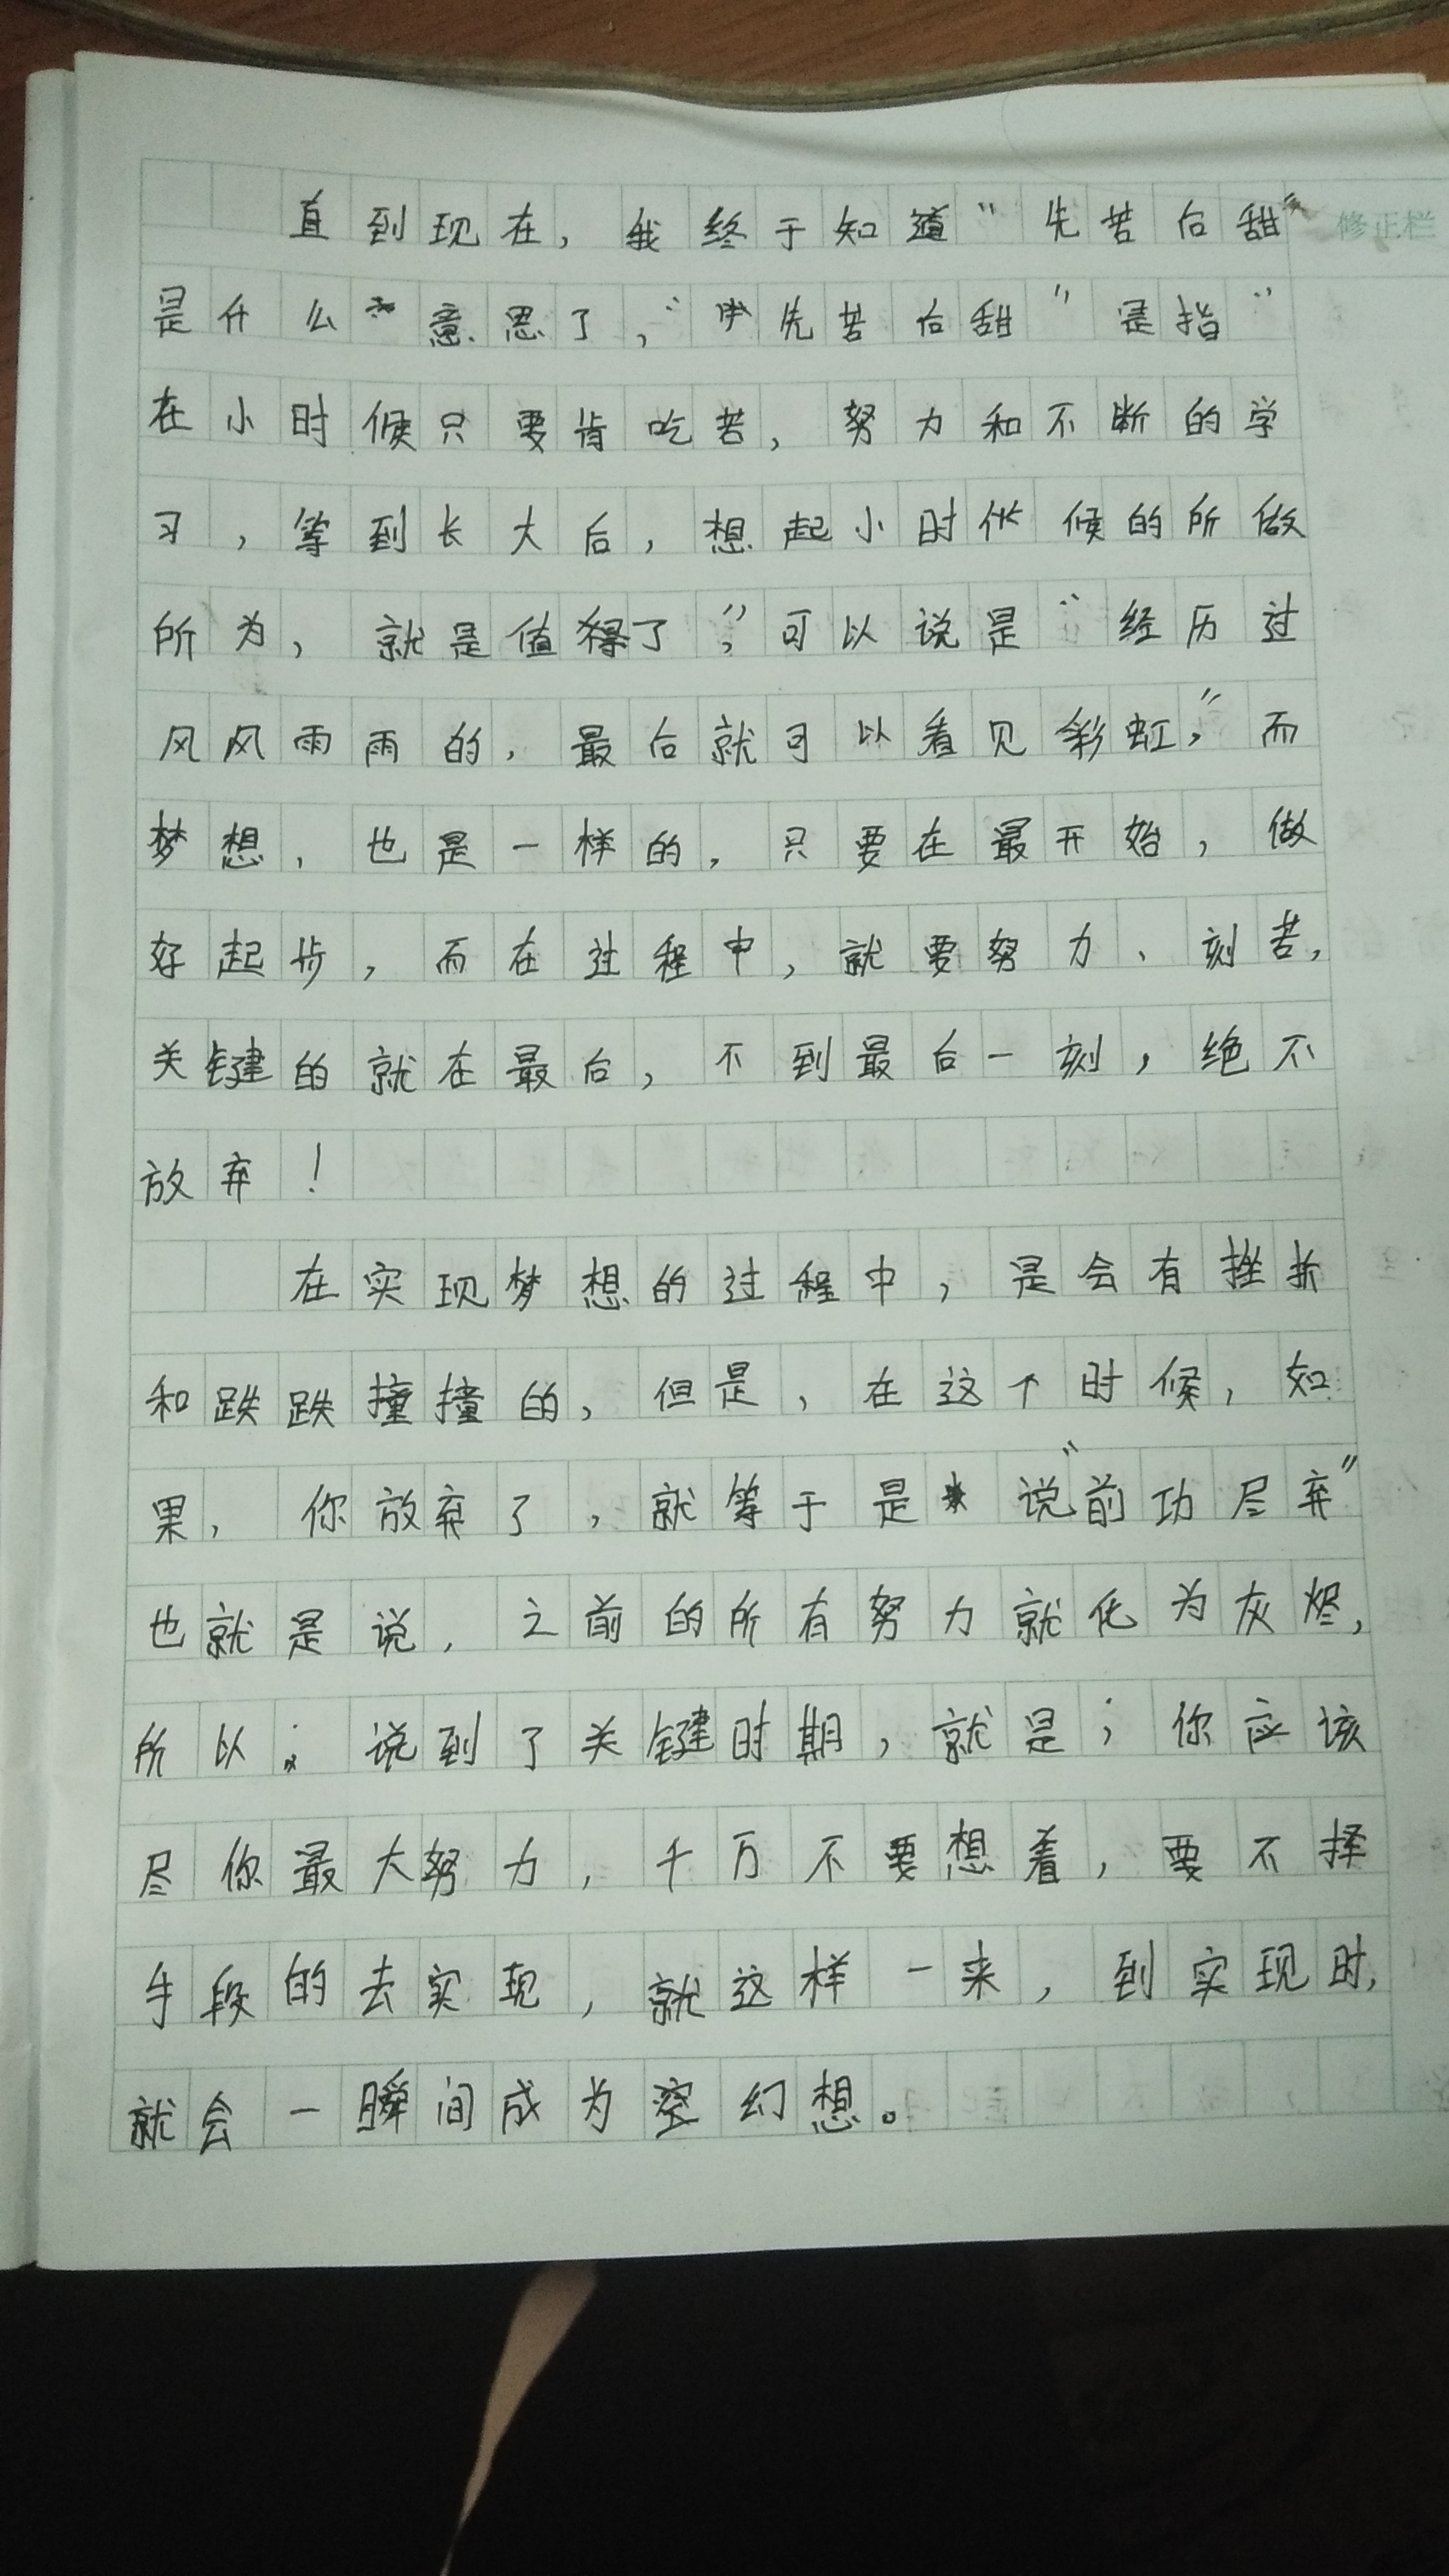 直到现在，我终于知道“先苦后甜”
修正栏
是什么意思了，“先苦后甜”是指“
在小时候只要肯吃苦，努力和不断的学
习，等到长大后，想起小时候的所做
所为，就是值得了”，可以说是“经历过
风风雨雨的，最后就可以看见彩虹”，而
梦想，也是一样的，只要在最开始，做
好起步，而在过程中，就要努力、刻苦，
关键的就在最后，不到最后一刻，绝不
放弃！
在实现梦想的过程中，是会有挫折
和跌跌撞撞的，但是，在这个时候，如
果，你放弃了，就等于是说“前功尽弃”
也就是说，之前的所有努力就化为灰烬，
所以：说到了关键时期，就是；你应该
尽你最大努力，千万不要想着，要不择
手段的去实现，就这样一来，到实现时，
就会一瞬间成为空幻想。